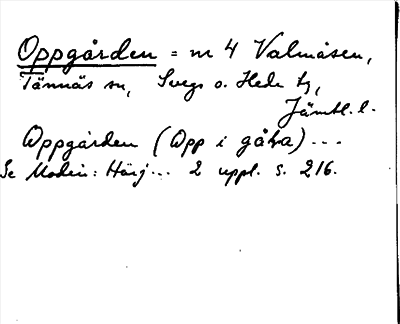 Oppgården = nr 4 Valmåsen,
Tännäs sn, Svegs o. Hede tg,
Jämtl. l.
Oppgården (Opp i gåḷa)...
Se Modin: Härj... 2 uppl. s. 216.